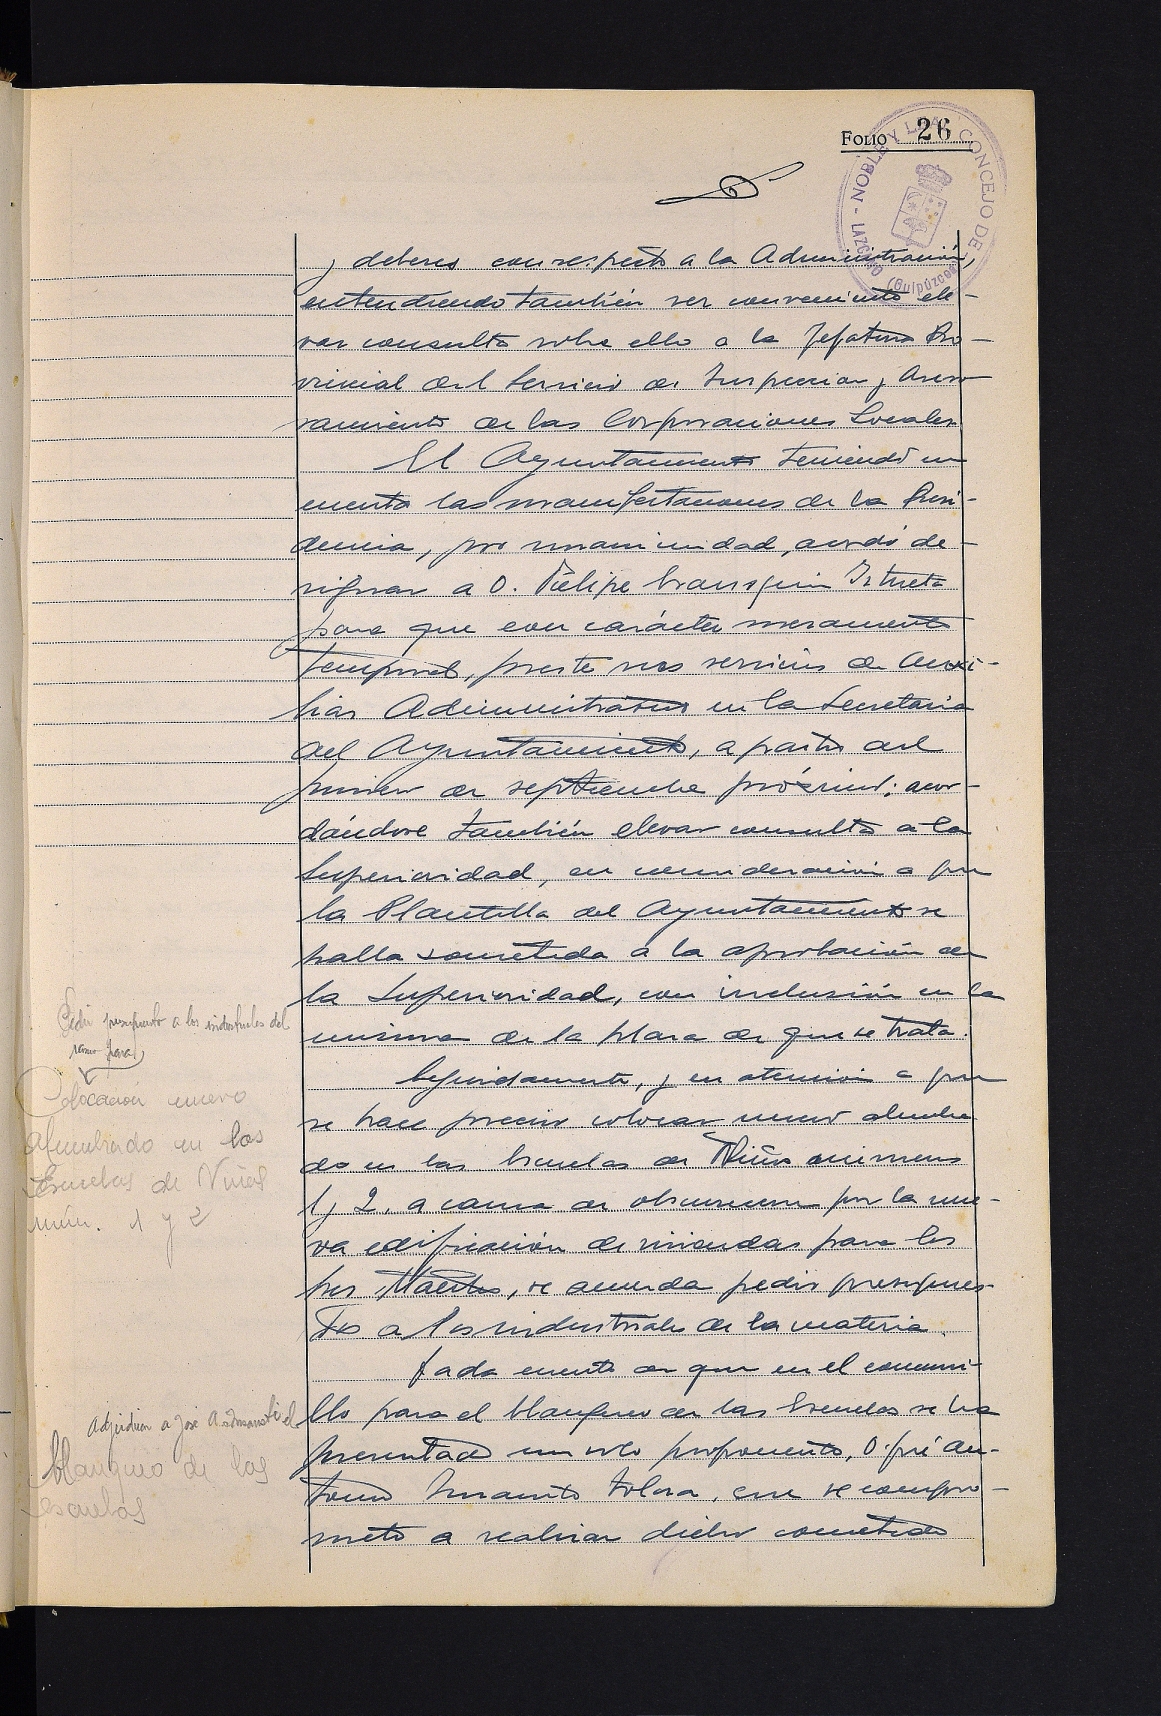 FOLIO 26
NOBLE Y LEAL CONCEJO DE LAZCANO (Guipúzcoa)
y deberes con respeto a la Administración,
entendiendo también ser conveniente ele-
var consulta sobre ello a la Jefatura Pro-
vincial del Servicio de Inspección y Aseso-
ramiento de las Corporaciones Locales
El Ayuntamiento teniendo en
cuenta las manifestaciones de la Presi-
dencia, por unanimidad, acordó de-
signar a D. Felipe Iztueta
para que con carácter meramente
temporal, preste sus servicios de Auxi-
liar Administrativo en la Secretaria
del Ayuntamiento, a partir del
primero de septiembre próximo; acor-
dándose también elevar consulta a la
Superioridad, en consideración a que
la Plantilla del Ayuntamiento se
halla sometida a la aprobación de
la Superioridad, con inclusión en la
misma de la plaza de que se trata.
Pedir presupuesto a los industriales del
ramo para
Colocación nuevo
alumbrado en las
Escuelas de Niñas
núm. 1 y 2
Seguidamente, y en atención a que
se hace preciso colocar nuevo alumbra
do en las Escuelas de Niños números
1 y 2, a causa de obscurecer por la nue-
va edificación de viviendas para los
Sres Maestros, se acuerda pedir presupues-
tos a los industriales de la materia.
Dada cuenta de que en el concursi-
llo para el blanqueo de las Escuelas se ha
presentado un solo proponente, D. José An-
tonio Tolosa, que se compro-
mete a realizar dicho cometido
Adjudican a José Antonio el
blanqueo de las
escuelas